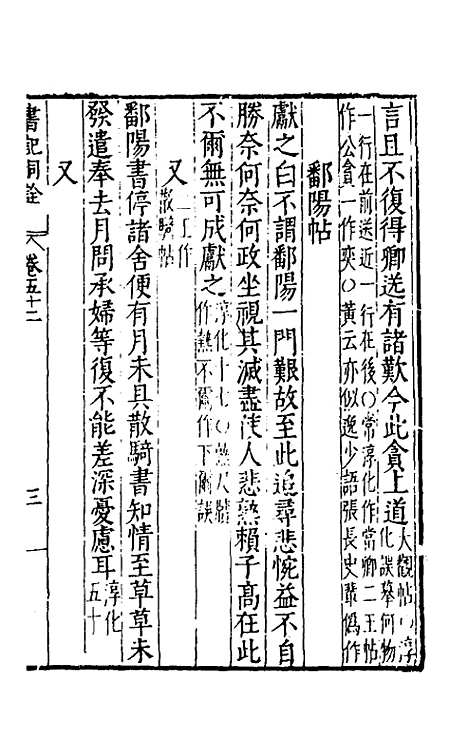 言且不復得卿送有諸歎今此貪上道大觀帖〇淳化誤摹何物
一行在前送近一行在後〇常淳化作當卿二王帖
作公貪一作奕〇黃云亦似逸少語張長史輩偽作
鄱陽帖
獻之白不謂鄱陽一門艱故至此追尋悲惋益不自
勝奈何奈何政坐視其滅盡使人悲熱賴子高在此
不爾無可成獻之淳化十七〇熱大觀作熱不爾作下爾誤
又二王作散騎帖
鄱陽書停諸舍便有月未具散騎書知情至草草未
發遣奉去月問承婦等復不能差深憂慮耳淳化五十
又
書記洞詮
卷五十二
三